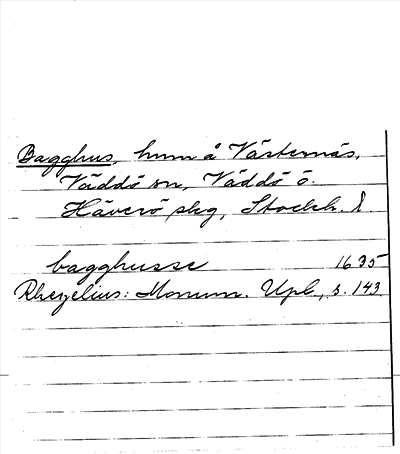 Bagghus, hmn å Västernäs,
Väddö sn, Väddö ö.
Häverö skg, Stockh. l
bagghusse 1635
Rhezelius: Monum. Upl., s. 143